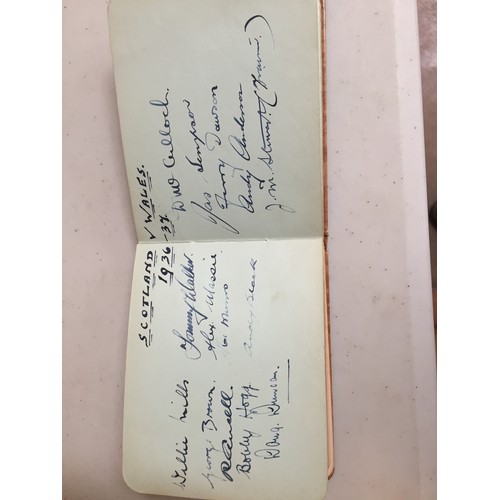 SCOTLAND V WALES.
1936-37.
Tommy Walker
Alex. Massie
Jim Munro
Andy Black
Willie Mills
George Brown.
R Ansell.
Bobby Hogg
Doug. Duncan.
D McCulloch.
Jas Simpson
Jerry Dawson
Andy Anderson
J. M. Stewart (Trainer)